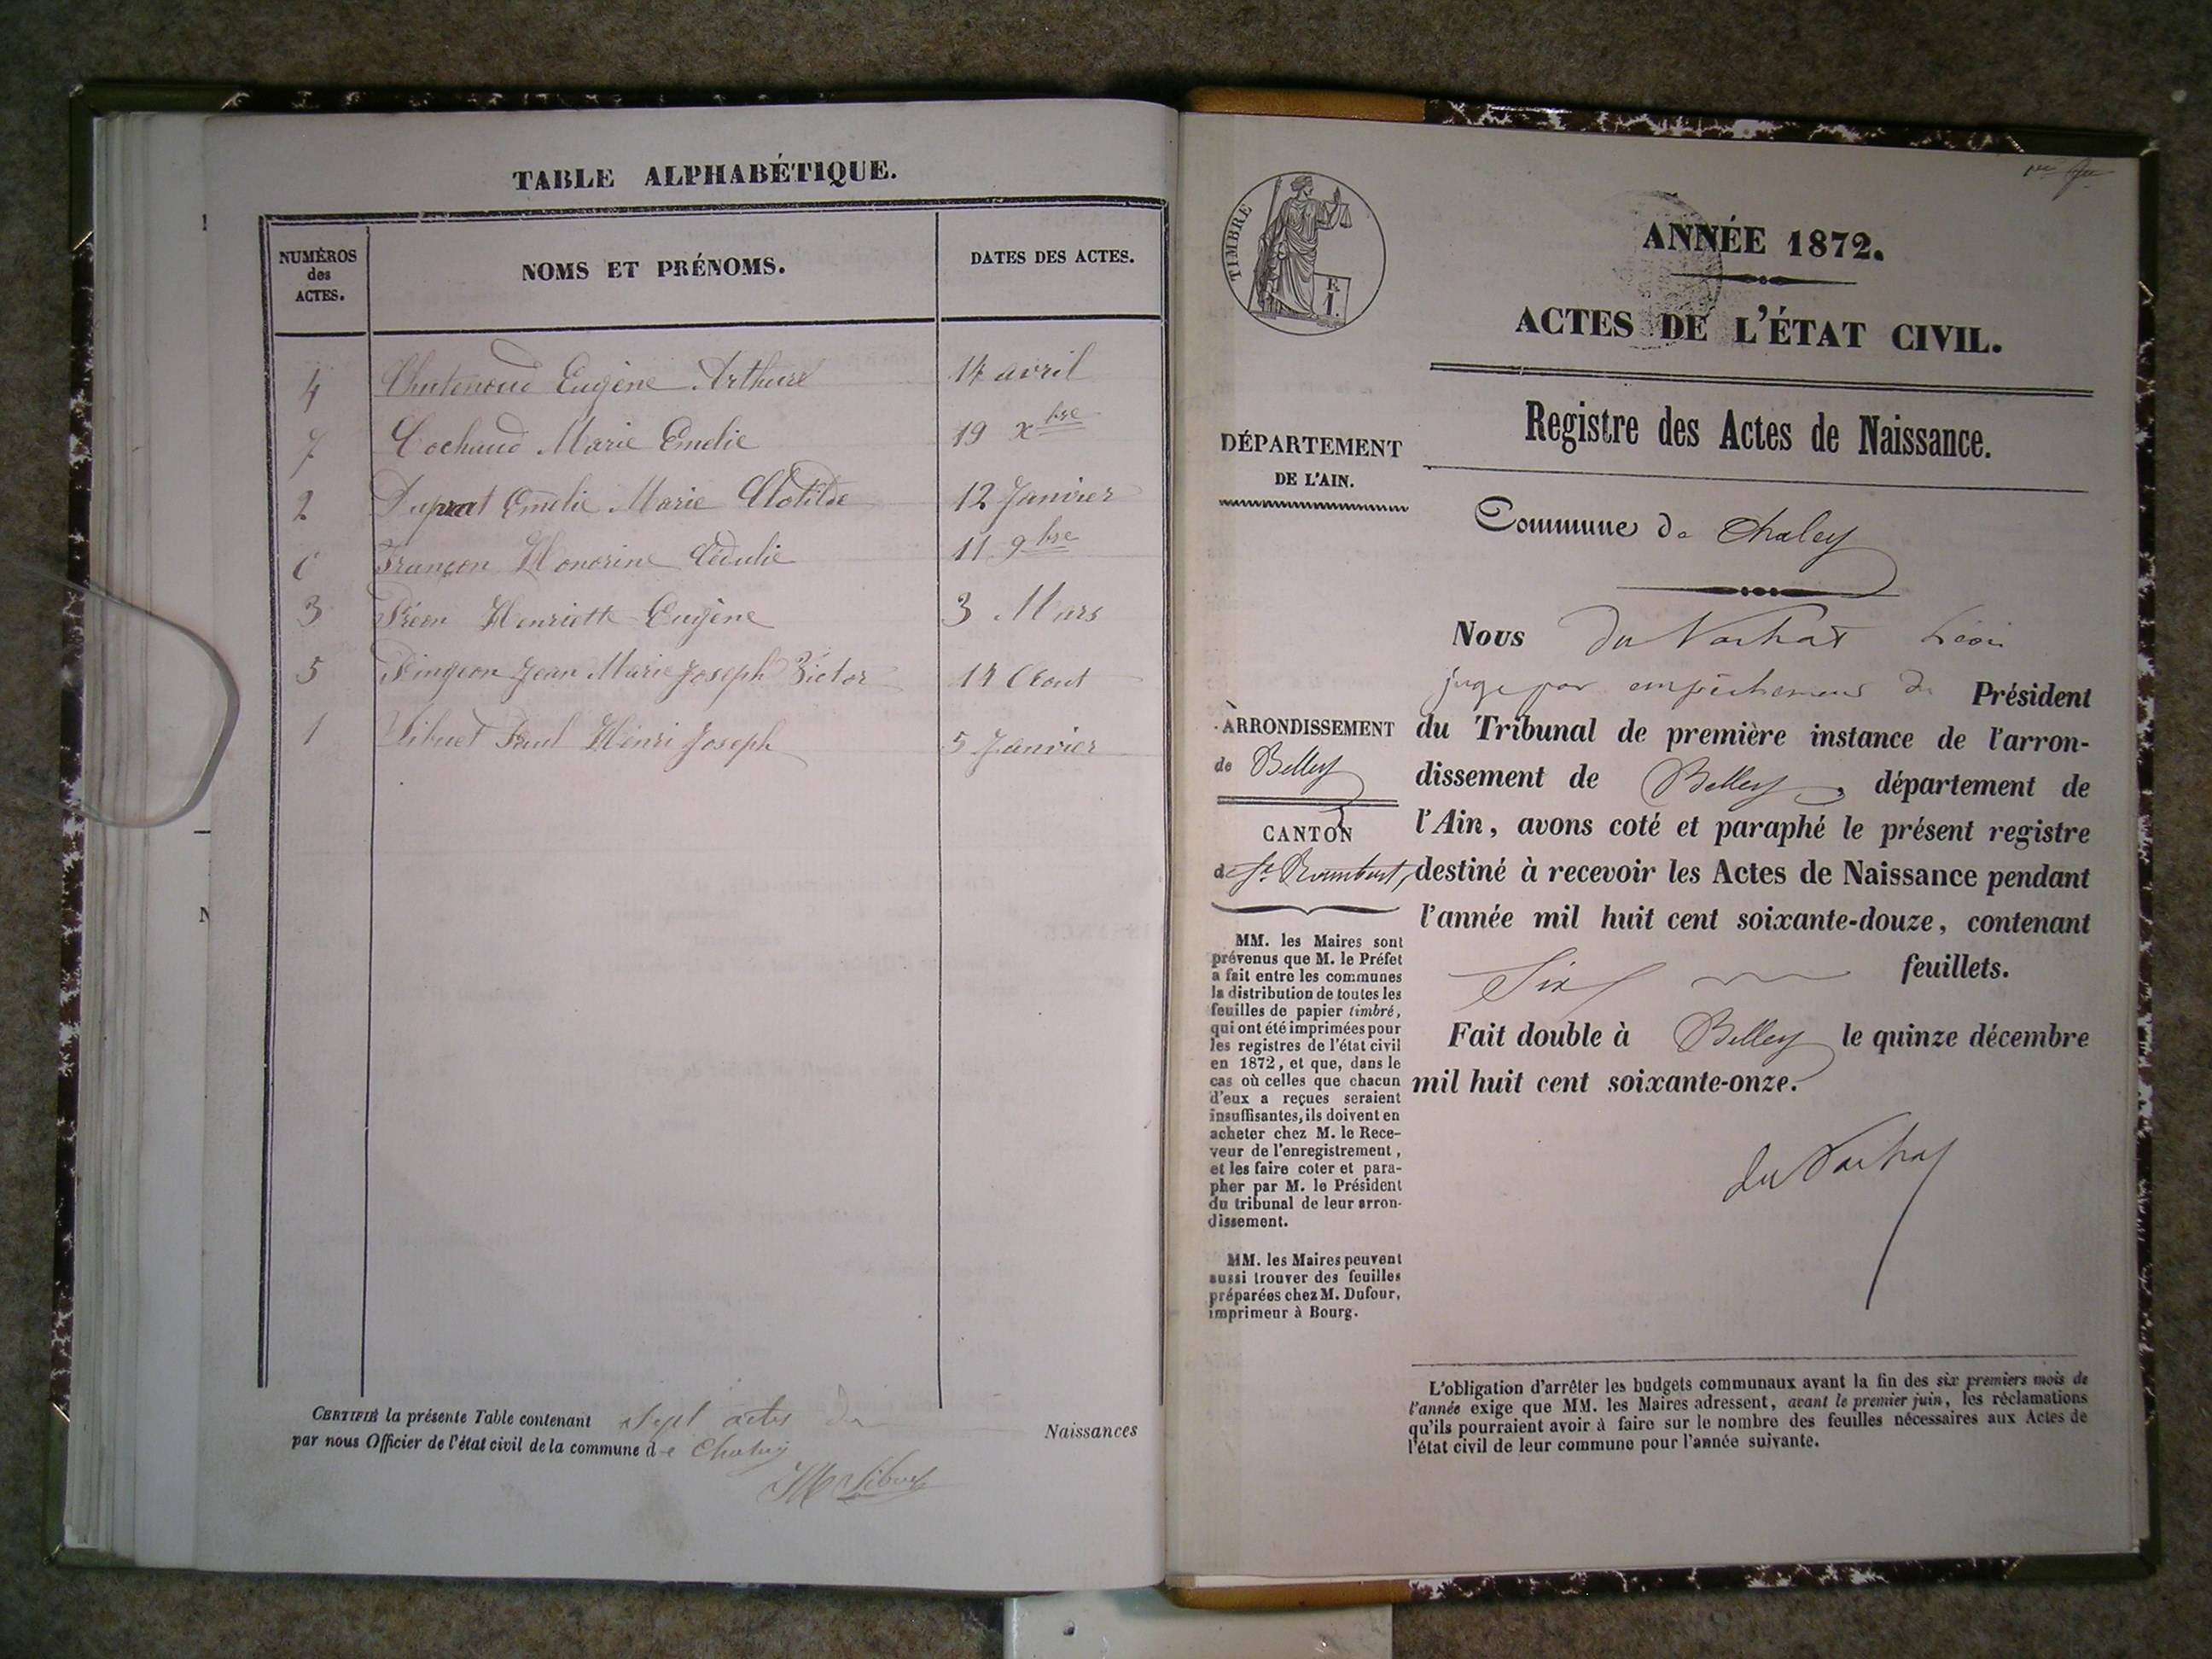 TABLE ALPHABÉTIQUE.
NUMÉROS des ACTES.
NOMS ET PRÉNOMS.
DATES DES ACTES.
4 Chatenoud Eugène Arthure 14 avril
7 Cochaud Marie Emelie 19 xbre
2 Duprat Emelie Marie Clotilde 12 Janvier
6 Françon Honorine 11 9bre
3 Henriette Eugène 3 Mars
5 Pingeon Jean Marie Joseph Victor 14 Aout
1 Sibuet Paul Hénri Joseph 5 Janvier
CERTIFIÉ la présente Table contenant sept actes de Naissances
par nous Officier de l'état civil de la commune de Chaley
Sibuet
TIMBRE
F.
1.
ANNÉE 1872.
ACTES DE L'ÉTAT CIVIL.
Registre des Actes de Naissance.
DÉPARTEMENT
DE L'AIN.
Commune de Chaley
Nous Léon
juge par empêchement du Président
du Tribunal de première instance de l'arron-
dissement de Belley, département de
l'Ain, avons coté et paraphé le présent registre
destiné à recevoir les Actes de Naissance pendant
l'année mil huit cent soixante-douze, contenant
Six feuillets.
Fait double à Belley le quinze décembre
mil huit cent soixante-onze.
ARRONDISSEMENT
de Belley
CANTON
de St. Rambert,
MM. les Maires sont
prévenus que M. le Préfet
a fait entre les communes
la distribution de toutes les
feuilles de papier timbré,
qui ont été imprimées pour
les registres de l'état civil
en 1872, et que, dans le
cas où celles que chacun
d'eux a reçues seraient
insuffisantes, ils doivent en
acheter chez M. le Rece-
veur de l'enregistrement,
et les faire coter et para-
pher par M. le Président
du tribunal de leur arron-
dissement.
MM. les Maires peuvent
aussi trouver des feuilles
préparées chez M. Dufour,
imprimeur à Bourg.
L'obligation d'arrêter les budgets communaux avant la fin des six premiers mois de
l'année exige que MM. les Maires adressent, avant le premier juin, les réclamations
qu'ils pourraient avoir à faire sur le nombre des feuilles nécessaires aux Actes de
l'état civil de leur commune pour l'année suivante.